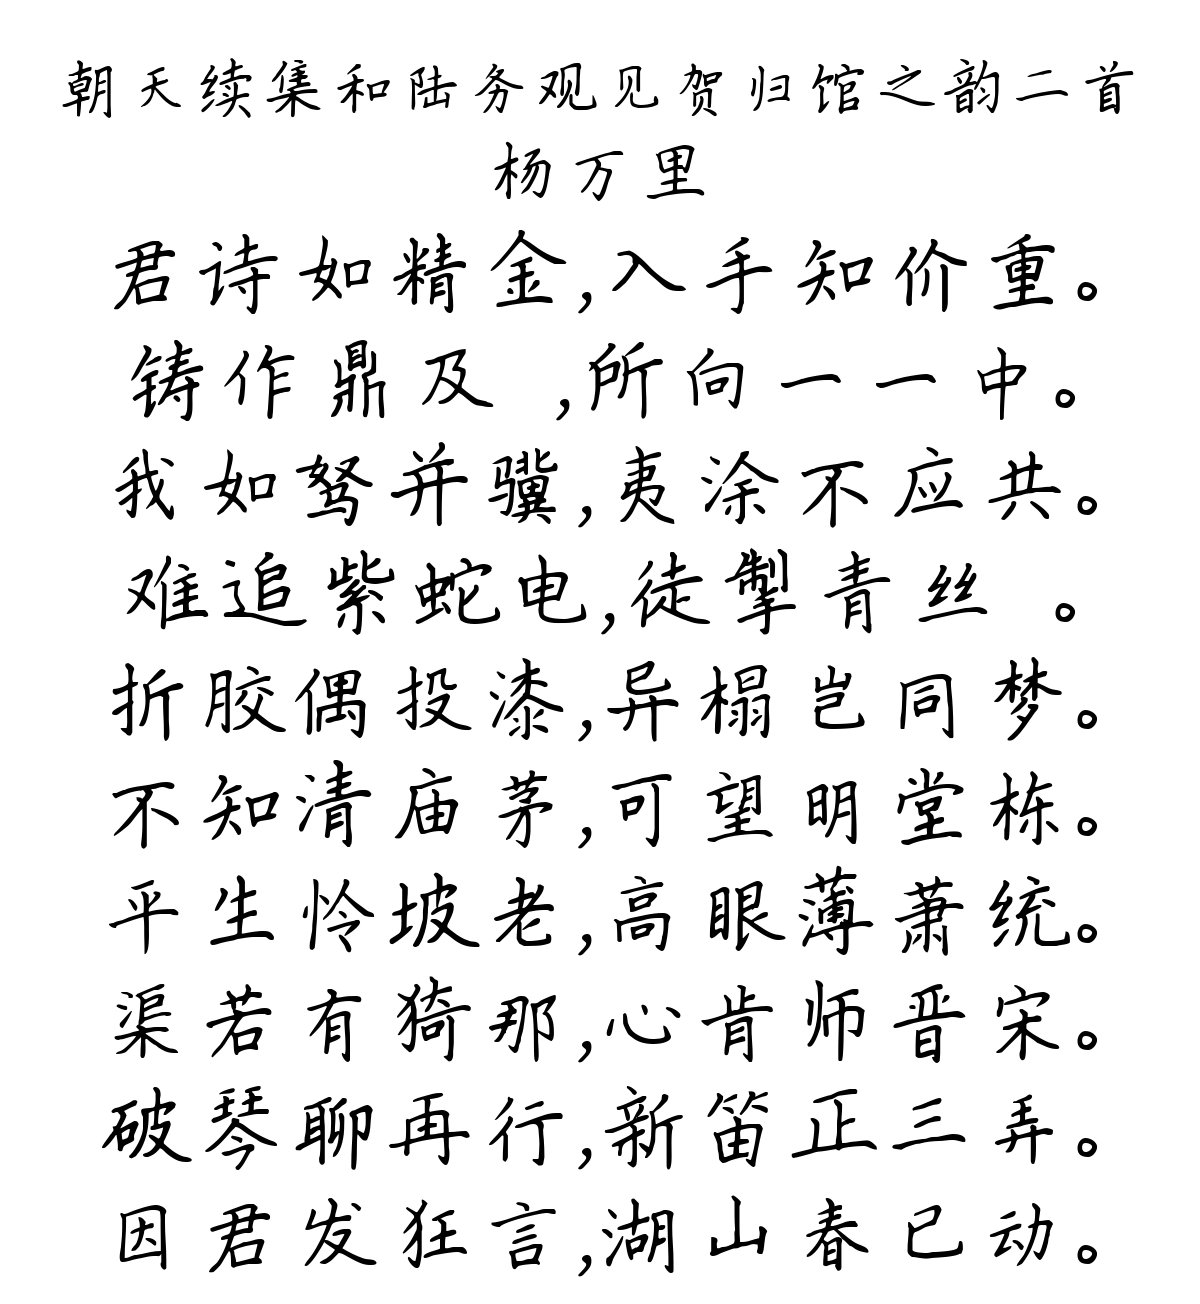 朝天续集和陆务观见贺归馆之韵二首
杨万里
君诗如精金,入手知价重。
铸作鼎及 ,所向一一中。
我如驽并骥,夷涂不应共。
难追紫蛇电,徒掣青丝 。
折胶偶投漆,异榻岂同梦。
不知清庙茅,可望明堂栋。
平生怜坡老,高眼薄萧统。
渠若有猗那,心肯师晋宋。
破琴聊再行,新笛正三弄。
因君发狂言,湖山春已动。